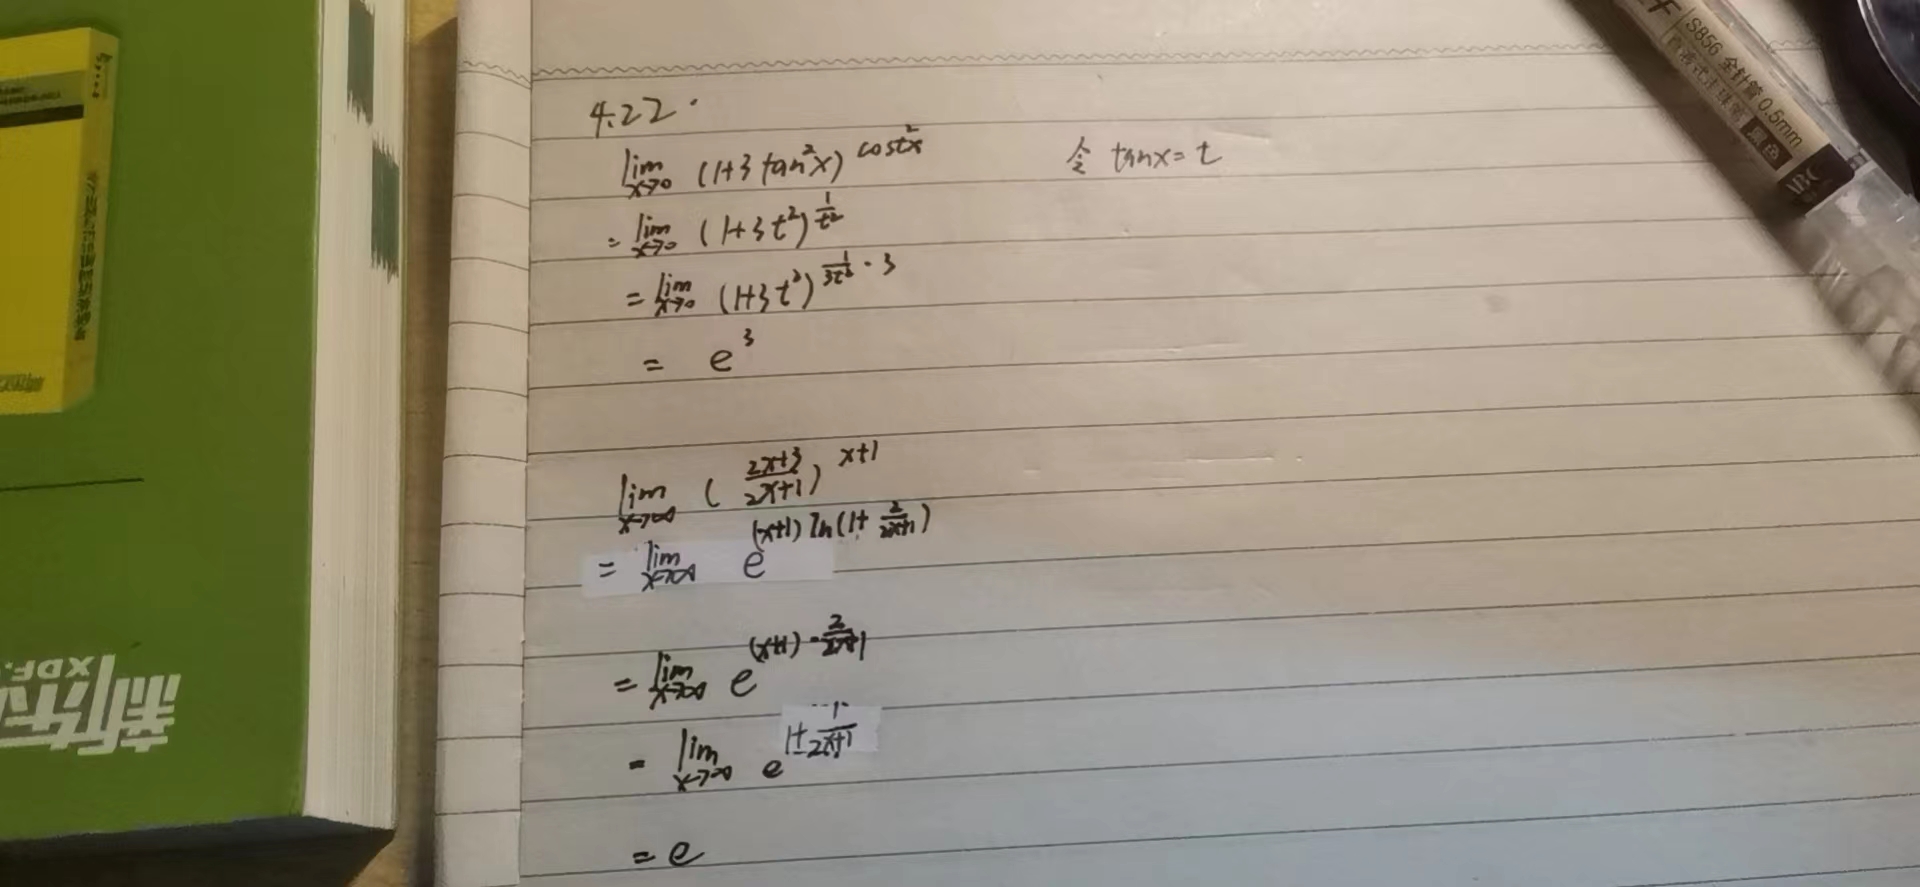 4.22.
lim x→0 (1+3tan²x)^cost²x 令 tanx=t
= lim x→0 (1+3t²)^(1/t²)
= lim x→0 (1+3t²)^(1/3t²·3)
= e³
lim x→∞ ((2x+3)/(2x+1))^(x+1)
= lim x→∞ e^((x+1)ln(1+2/(2x+1)))
= lim x→∞ e^((x+1)·2/(2x+1))
= lim x→∞ e^(1+1/(2x+1))
= e
S856 全针管 0.5mm
直液式走珠笔 黑色
ABC
XDF.